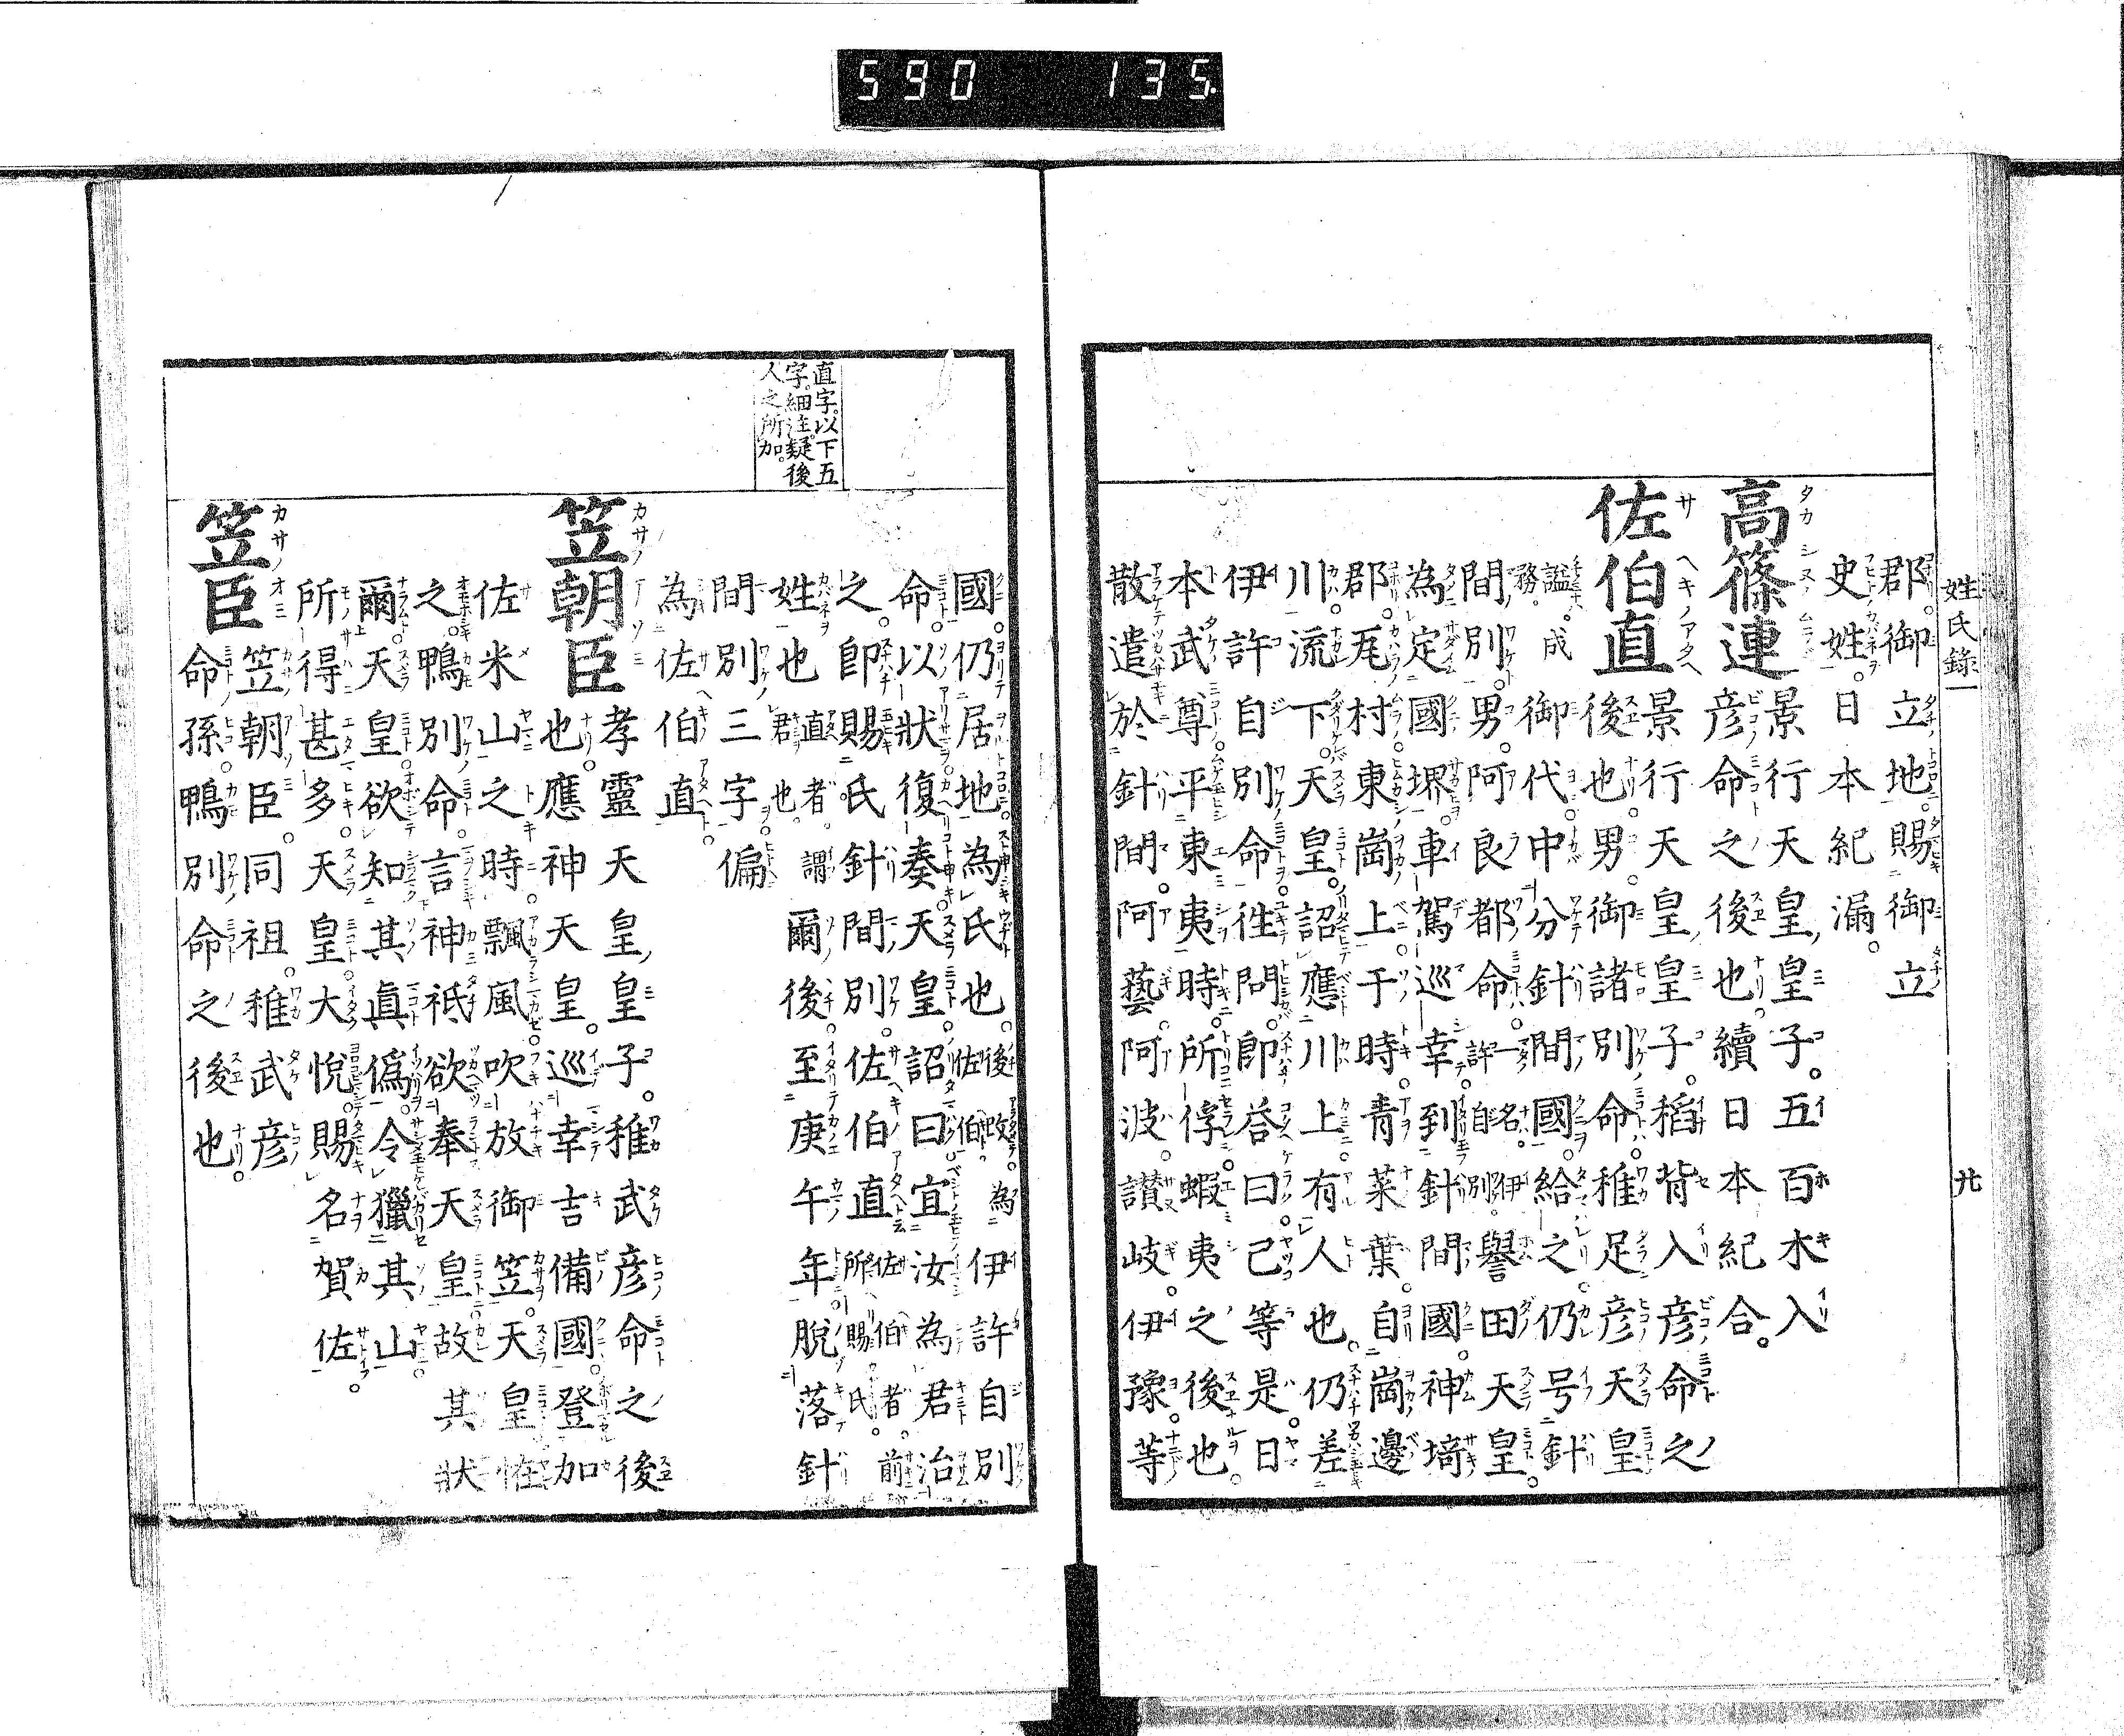 590 135
姓氏錄一
九
郡。御立地。賜御立
史姓。日本紀漏。
高篠連 景行天皇皇子。五百木入
彦命之後也。續日本紀合。
佐伯直 景行天皇皇子。稻背入彦命之
後也。男。御諸別命。稚足彦天皇
諡。成務。 御代。中分針間國。給之。仍号針
間別。男。阿良都命。一名。伊許自別。 譽田天皇。
為定國堺。車駕巡幸。到針間國。神埼
郡。瓦村東崗上。于時。青菜葉。自崗邊
川流下。天皇。詔應川上有人也。仍差
伊許自別命。徃問。即荅曰。己等是。日
本武尊平東夷時。所俘蝦夷之後也。
散遣於針間。阿藝。阿波。讃岐。伊豫。等
國。仍居地為氏也。後改。為佐伯。 伊許自別
命。以狀復奏。天皇。詔曰。宜汝為君治
之。即賜氏針間別。佐伯直。佐伯者。所賜氏。前
姓也。直者。謂君也。 爾後。至庚午年。脫落針
間別三字。偏
為佐伯直。
直字。以下五
字。細注。疑後
人之所加。
笠朝臣 孝靈天皇皇子。稚武彦命之後
也。應神天皇。巡幸吉備國。登加
佐米山之時。飄風吹放御笠。天皇怪
之。鴨別命。言神祇欲奉天皇。故其狀
爾。天皇。欲知其眞僞。令獵其山。
所得甚多。天皇。大悅。賜名賀佐。
笠臣 笠朝臣。同祖。稚武彦
命孫。鴨別命之後也。